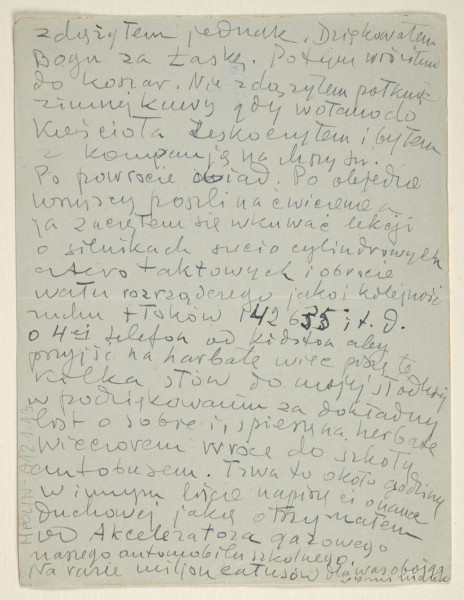 zdążyłem jednak. Dziękowałem
Bogu za Łaskę. Potym wróciłem
do koszar. Nie zdążyłem połknąć
zimnej kawy gdy wołano do
Kościoła Zeskoczyłem i byłem
z kompanją na mszy św.
Po powrocie obiad. Po obiedzie
wszyscy poszli na ćwiczenie a
ja zacząłem się wkuwać lekcji
o silnikach sześcio cylindrowych
cztero taktowych i obrocie
wału rozrządczego jako i kolejność
ruchu tłoków 142635 i t. d.
o 4ej telefon od
przyjść na herbatę więc piszę te
kilka słów do mojej słodkiej
w podziękowaniu za dokładny
list o sobie i spieszę na herbatę
wieczorem wrócę do szkoły
autobusem. Trwa to około godziny
w innym liście napiszę ci o nauce
duchowej jaką otrzymałem
od Akceleratora gazowego
naszego automobilu szkolnego.
Na razie miljon całusów dla was obojga
MPOLIN-A12.1.13